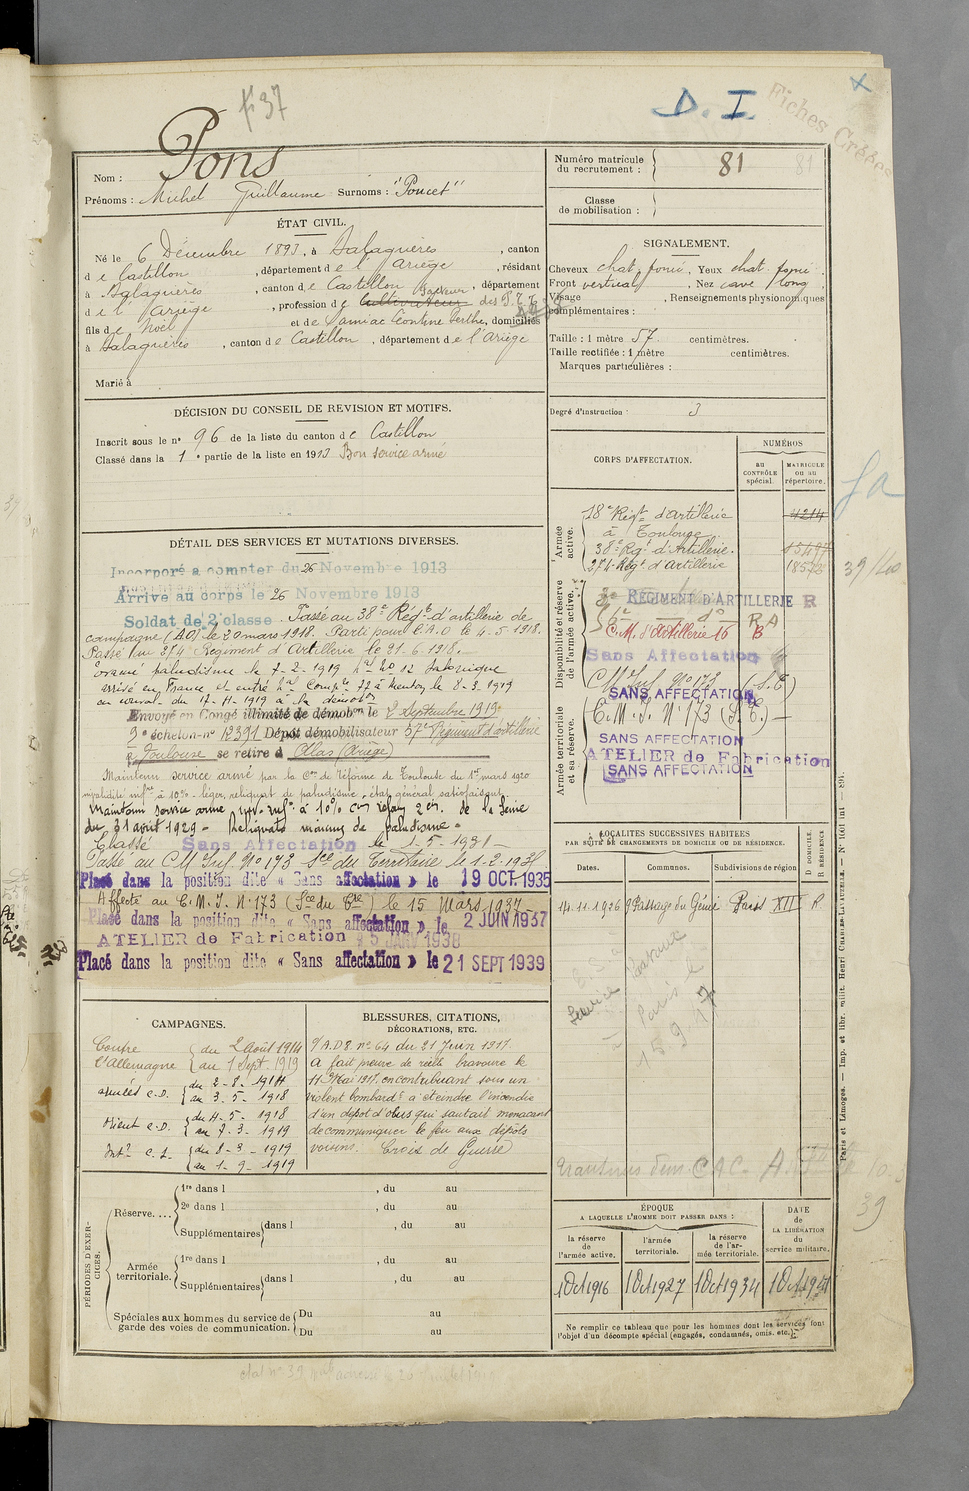 fi 37
D. I.
Fiches Créées
Nom : Pons
Prénoms : Michel Guillaume Surnoms : "Poucet"
Numéro matricule du recrutement : 81
Classe de mobilisation :
ÉTAT CIVIL.
Né le 6 Décembre 1893, à Balaguères, canton
de Castillon, département de l'Ariège, résidant
à Balaguères, canton de Castillon, département
de l'Ariège, profession de cultivateur Facteur des P.T.T.
fils de Noël et de Lamiac Léontine Berthe, domiciliés
à Balaguères, canton de Castillon, département de l'Ariège
Marié à
SIGNALEMENT.
Cheveux chat. foncé, Yeux chat. foncé.
Front vertical, Nez cave long
Visage , Renseignements physionomiques
complémentaires :
Taille : 1 mètre 57 centimètres.
Taille rectifiée : 1 mètre centimètres.
Marques particulières :
Degré d'instruction : 3
DÉCISION DU CONSEIL DE REVISION ET MOTIFS.
Inscrit sous le n° 96 de la liste du canton de Castillon
Classé dans la 1e partie de la liste en 1913 Bon service armé
DÉTAIL DES SERVICES ET MUTATIONS DIVERSES.
Incorporé a compter du 26 Novembre 1913
Arrivé au corps le 26 Novembre 1913
Soldat de 2e classe. Passé au 38e Régt d'artillerie de
campagne (AO) le 20 mars 1918. Parti pour l'A.O le 4-5-1918.
Passé au 274e Régiment d'Artillerie le 21-6-1918.
Evacué paludisme le 7-2-1919 hal no 12 Salonique
arrivé en France et entré hal Compre 77 à Menton le 8-3-1919
Envoyé en Congé illimité de démobon le 2 septembre 1919
9e échelon n° 12391 Dépôt démobilisateur 57e Régiment d'artillerie
à Toulouse se retire à Allas (Ariège)
Maintenu service armé par la Con de réforme de Toulouse du 1er mars 1920
invalidité infre à 10% - léger reliquat de paludisme, état général satisfaisant
Maintenu service armé, inv. infre à 10% Con réfor. 2em. de la Seine
du 31 août 1929 - Reliquats minimes de paludisme.
Classé Sans Affectation le 1-5-1931
Passé au CM Inf. No 173 Sce du Territoire le 1-2-193
Placé dans la position dite « Sans affectation » le 19 OCT. 1935
Affecté au C.M.I. N° 173 (Sce du Tre) le 15 Mars 1937
Placé dans la position dite « Sans affectation » le 2 JUIN 1937
ATELIER de Fabrication 5 JANV 1938
Placé dans la position dite « Sans affectation » le 21 SEPT 1939
CORPS D'AFFECTATION.
NUMÉROS
au CONTRÔLE spécial.
MATRICULE ou au répertoire.
Armée active.
18e Régt d'artillerie 4214
à Toulouse
38e Reg. d'Artillerie. 15497
274e Regt d'artillerie 18578
Disponibilité et réserve de l'armée active.
REGIMENT D'ARTILLERIE R
do R A
C.M. d'Artillerie 16 B
Sans Affectation
CM Inf. No 173 (S.T)
SANS AFFECTATION
Armée territoriale et sa réserve.
C.M.I. N° 173 (S.T.)
SANS AFFECTATION
ATELIER de Fabrication
SANS AFFECTATION
LOCALITES SUCCESSIVES HABITEES
PAR SUITE DE CHANGEMENTS DE DOMICILE OU DE RÉSIDENCE.
Dates. Communes. Subdivisions de région D DOMICILE. R RÉSIDENCE
14.11.1926 9 Passage du Génie Paris XII R
CAMPAGNES.
Contre l'Allemagne du 2 Août 1914 au 1 Sept. 1919
armées C.D. du 2-8-1914 au 3-5-1918
Orient C.D. du 4-5-1918 au 7-3-1919
Intr C.S. du 8-3-1919 au 1-9-1919
BLESSURES, CITATIONS,
DÉCORATIONS, ETC.
A.D 8. no 64 du 21 Juin 1917.
A fait preuve de réelle bravoure le
11 Mai 1917, en contribuant sous un
violent bombardt à éteindre l'incendie
d'un dépôt d'obus qui sautait menaçant
de communiquer le feu aux dépôts
voisins. Croix de Guerre
PÉRIODES D'EXERCICES.
Réserve.... 1re dans l , du au
2e dans l , du au
Supplémentaires dans l , du au
Armée territoriale. 1re dans l , du au
Supplémentaires dans l , du au
Spéciales aux hommes du service de garde des voies de communication. Du au
Du au
ÉPOQUE
A LAQUELLE L'HOMME DOIT PASSER DANS :
la réserve de l'armée active.
l'armée territoriale.
la réserve de l'armée territoriale.
DATE de LA LIBÉRATION du service militaire.
1 Oct 1916 1 Oct 1927 1 Oct 1934 1 Oct 1941
Ne remplir ce tableau que pour les hommes dont les services font
l'objet d'un décompte spécial (engagés, condamnés, omis. etc.).
Paris et Limoges. — Imp. et libr. milit. Henri CHARLES-LAVAUZELLE.
39